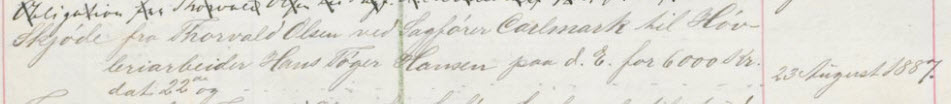 Obligation fra Thorvald Olsen
Skjøde fra Thorvald Olsen ved Sagfører Carlmark til Høv-
leriarbeider Hans Tøger Hansen paa d. E. for 6000 Kr.
dat 22de og 23 August 1887.